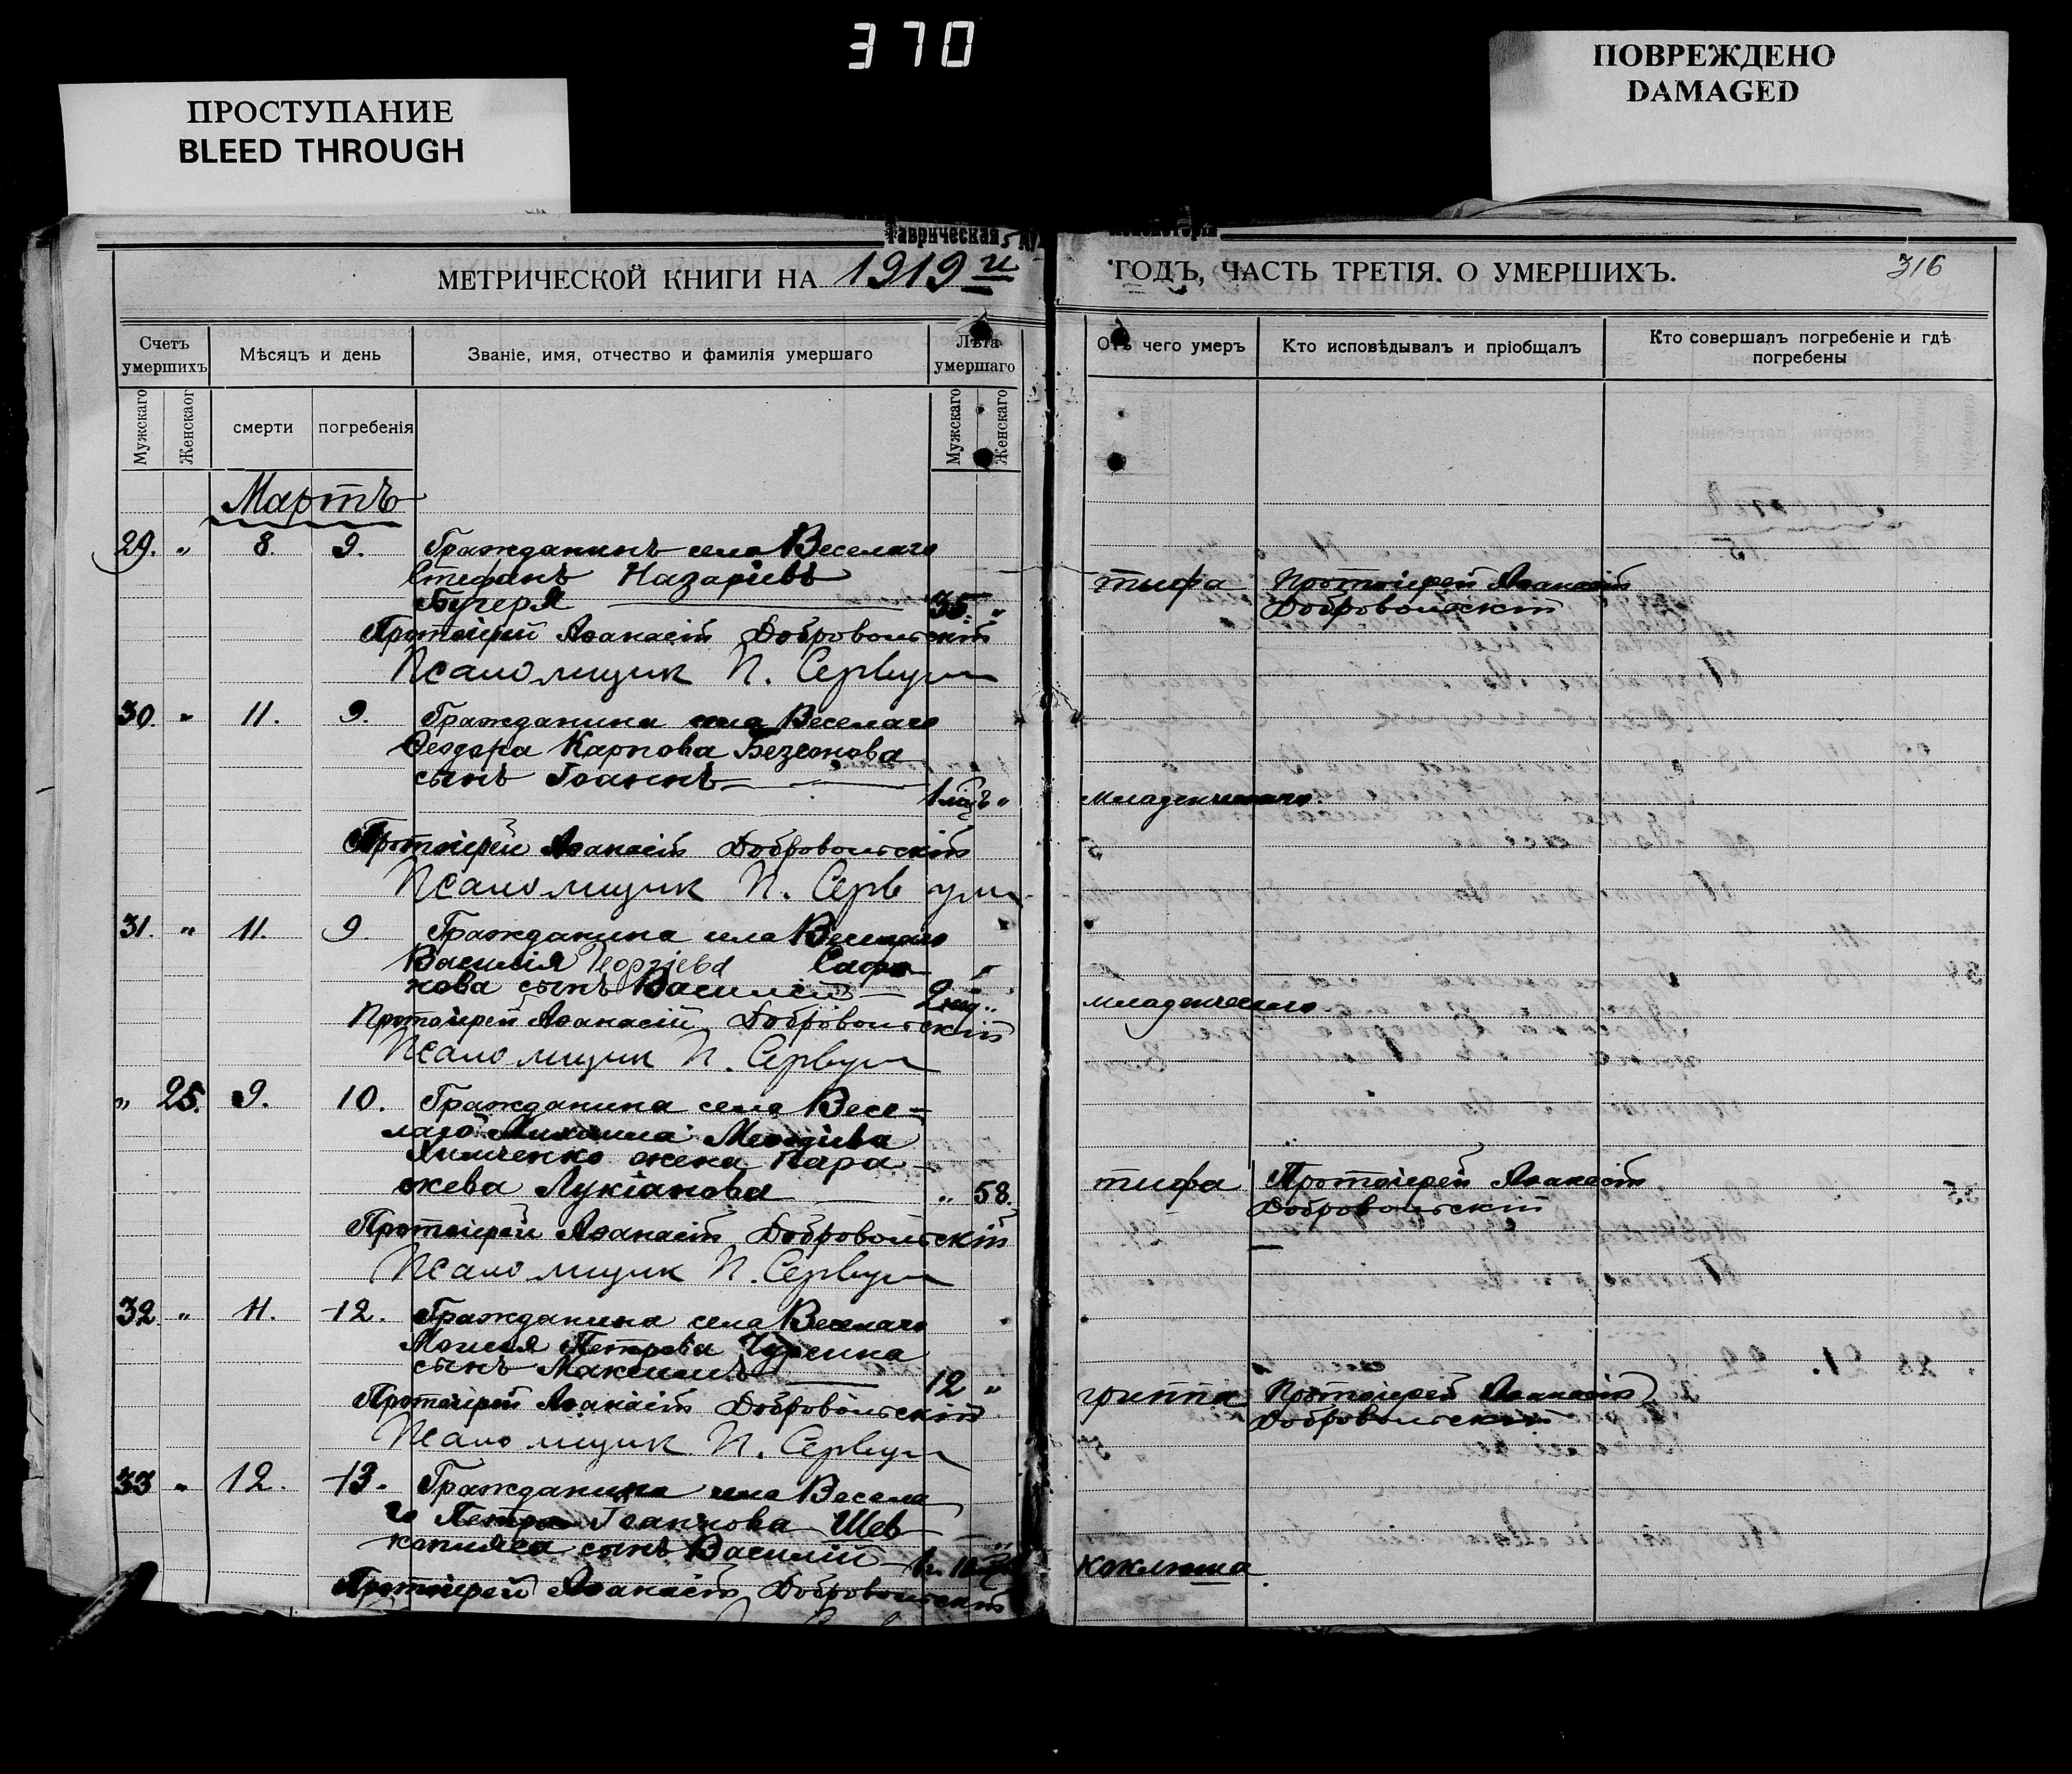 370
ПРОСТУПАНИЕ
BLEED THROUGH
ПОВРЕЖДЕНО
DAMAGED
Таврическая
МЕТРИЧЕСКОЙ КНИГИ НА 1919 й ГОДЪ, ЧАСТЬ ТРЕТІЯ. О УМЕРШИХЪ.
316
Счетъ умершихъ
Мѣсяцъ и день
Званіе, имя, отчество и фамилія умершаго
Лѣта умершаго
Отъ чего умеръ
Кто исповѣдывалъ и пріобщалъ
Кто совершалъ погребеніе и гдѣ погребены
Мужскаго
Женскаог
смерти
погребенія
Мужскаго
Женскаго
Мартъ
29. „ 8. 9. Гражданинъ села Веселаго
Стефанъ Назаріевъ тифа Протоіерей Аѳанасій
Бугеря 35 „ Добровольскій
Протоіерей Аѳанасій Добровольскій
Псаломщик П.
30. „ 11. 9. Гражданина села Веселаго
Ѳеодора Карпова Безсонова
сынъ Іоаннъ
1 „ младенческаго
Протоіерей Аѳанасій Добровольскій
Псаломщик П.
31. „ 11. 9. Гражданина села Веселаго
Василія Георгіева Сафо
нова сынъ Василій 2 „ младенческаго
Протоіерей Аѳанасій Добровольскій
Псаломщик П.
„ 25. 9. 10. Гражданина села Весе=
лаго Михаила
жена Пара
скева Лукіанова „ 58. тифа Протоіерей Аѳанасій
Добровольскій
Протоіерей Аѳанасій Добровольскій
Псаломщик П.
32 „ 11. 12. Гражданина села Веселаго
Моисея Петрова Чурсина
сынъ Максимъ 12 „ гриппа Протоіерей Аѳанасій
Добровольскій
Протоіерей Аѳанасій Добровольскій
Псаломщик П.
33 „ 12. 13. Гражданина села Весела
го Петра Іоаннова Шев
сынъ Василій коклюша
Протоіерей Аѳанасій Добровольскій